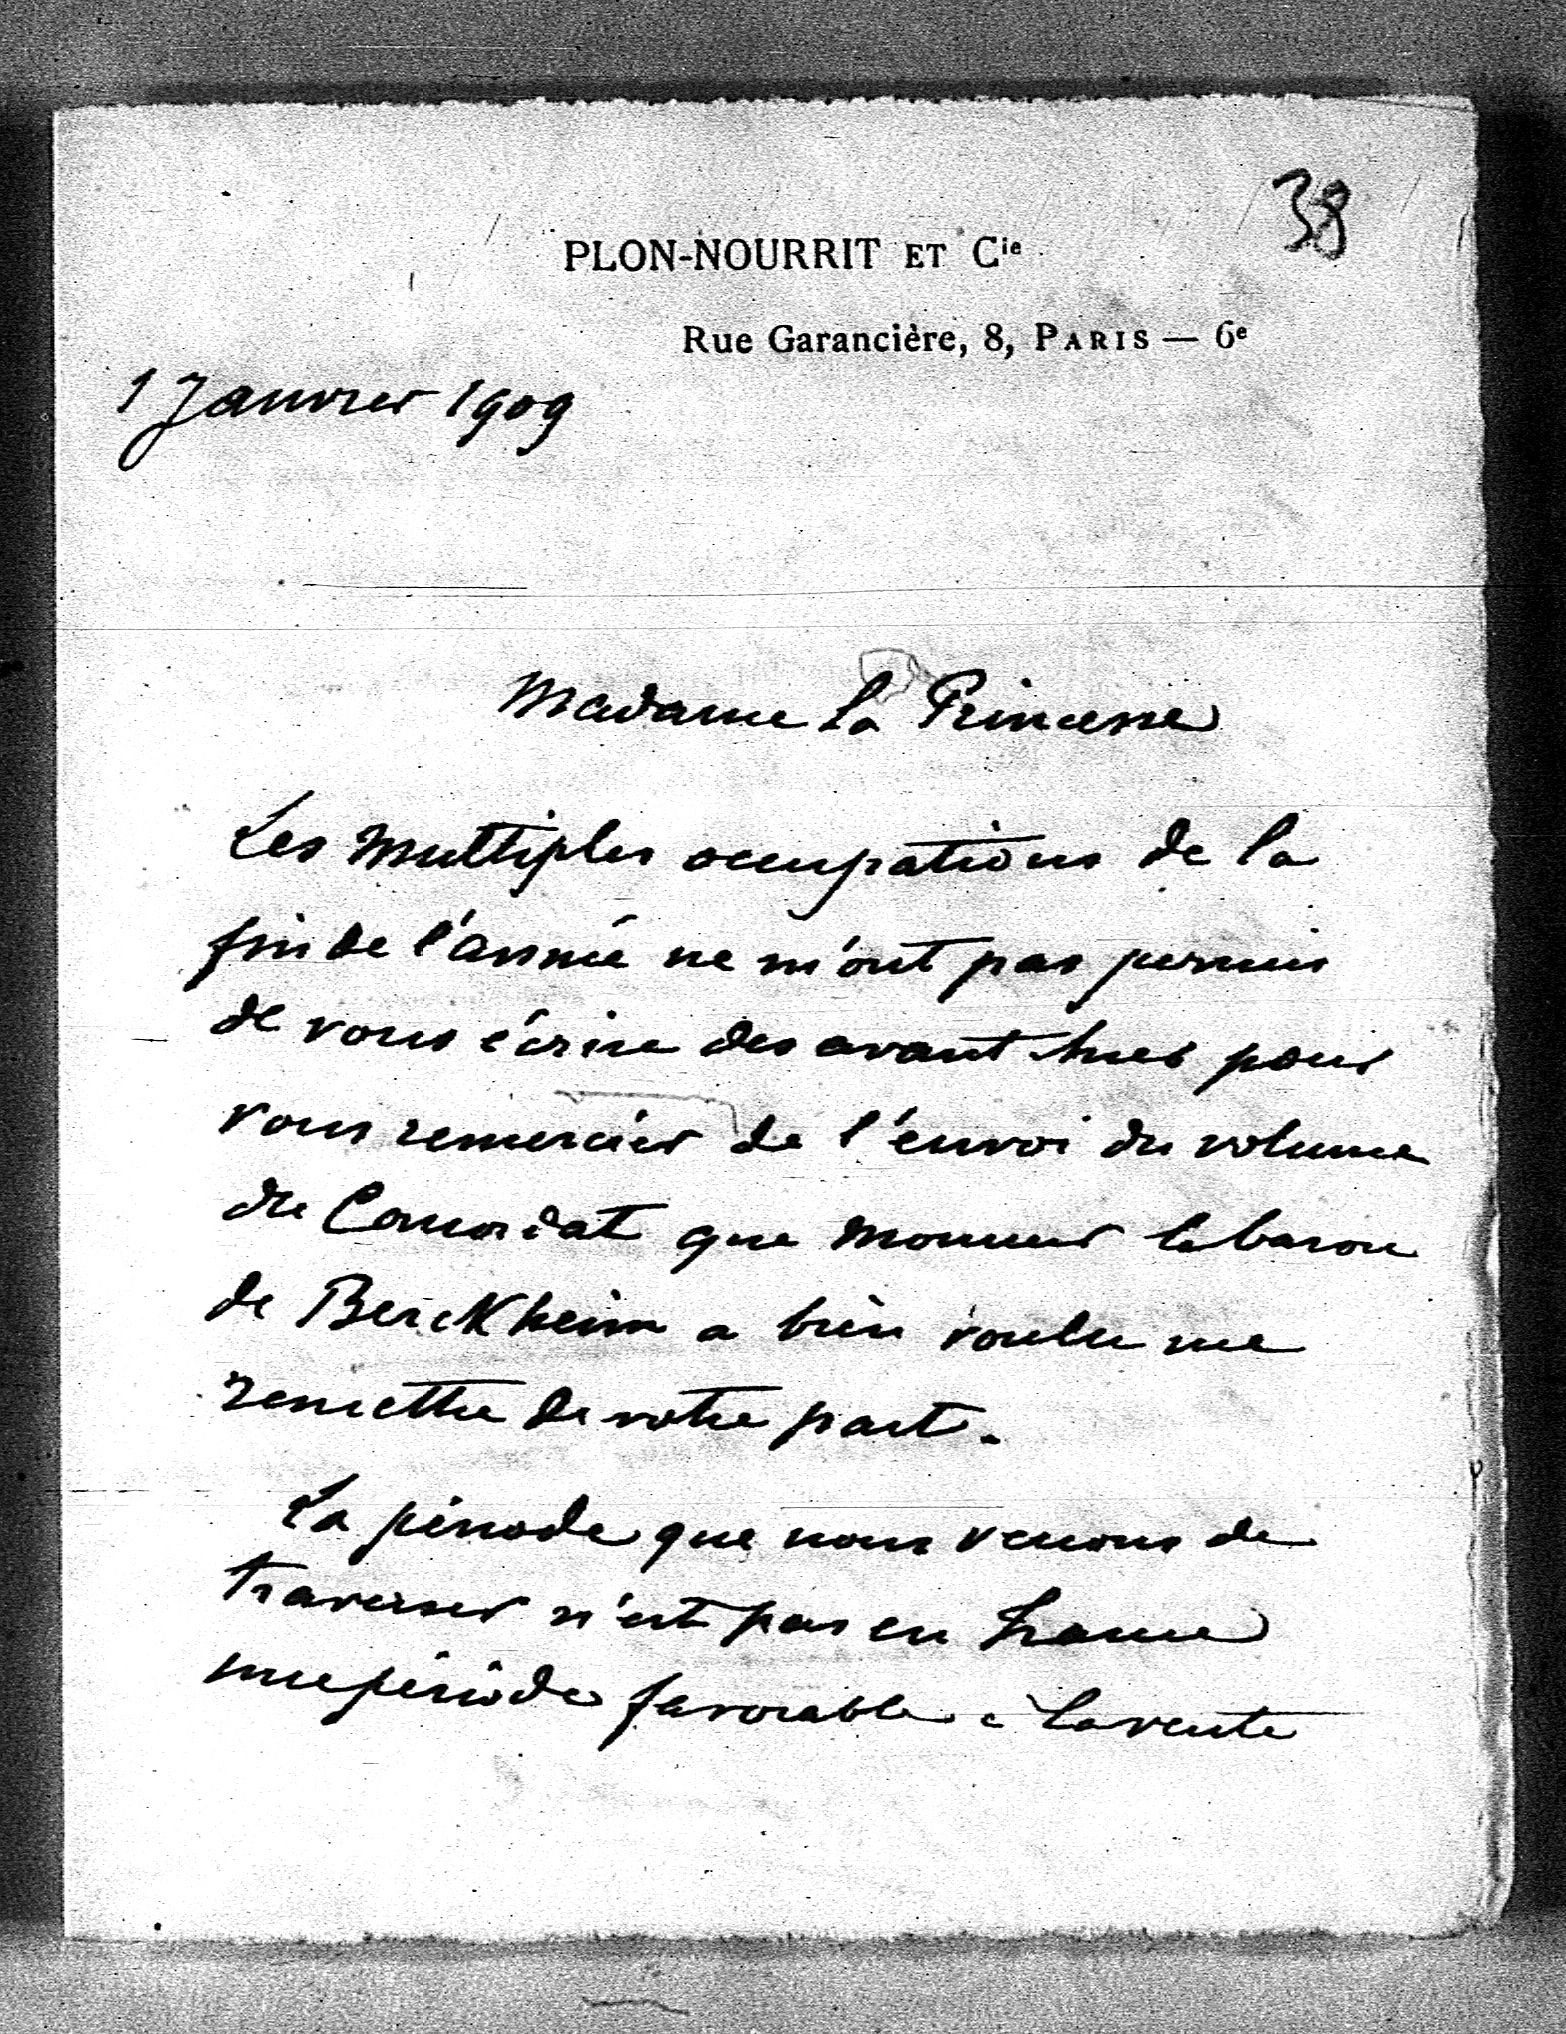 38
PLON-NOURRIT ET Cie
Rue Garancière, 8, PARIS — 6e
1 Janvier 1909
Madame la Princesse
Les multiples occupations de la
fin de l'année ne m'ont pas permis
de vous écrire des avant hier pour
vous remercier de l'envoi du volume
du Concordat que Monsieur le baron
de Berckheim a bien voulu me
remettre de votre part.
La période que nous venons de
traverser n'est pas en France
une période favorable à la vente